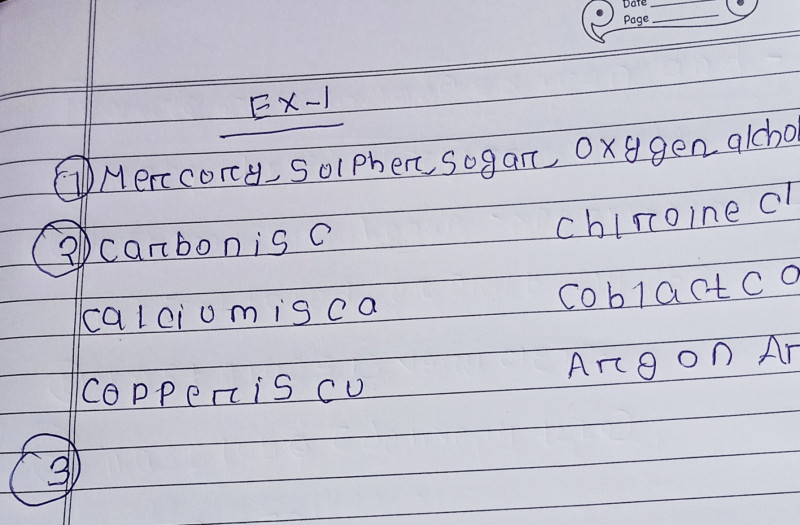 Date
Page
EX-1
① Mercory, Solpher, Sogar, oxygen, alchol
② carbon is C chlroine Cl
calciom is ca Coblact co
copper is cu Argon Ar
③